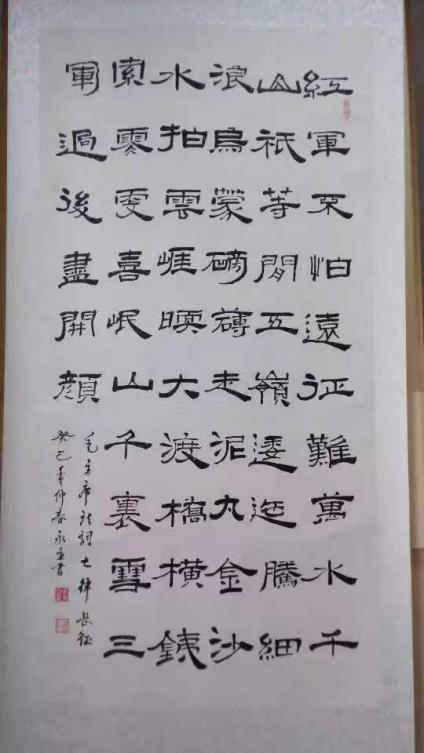 紅軍不怕遠征難萬水千
山祇等閒五嶺逶迤騰細
浪烏蒙磅礴走泥丸金沙
水拍雲崖暖大渡橋橫銕
索寒更喜岷山千裏雪三
軍過後盡開顏
毛主席詩詞七律長征
癸巳年仲春永書